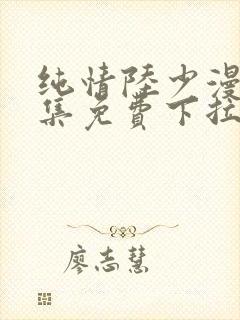 纯情陆少漫
集免费下拉
廖志慧